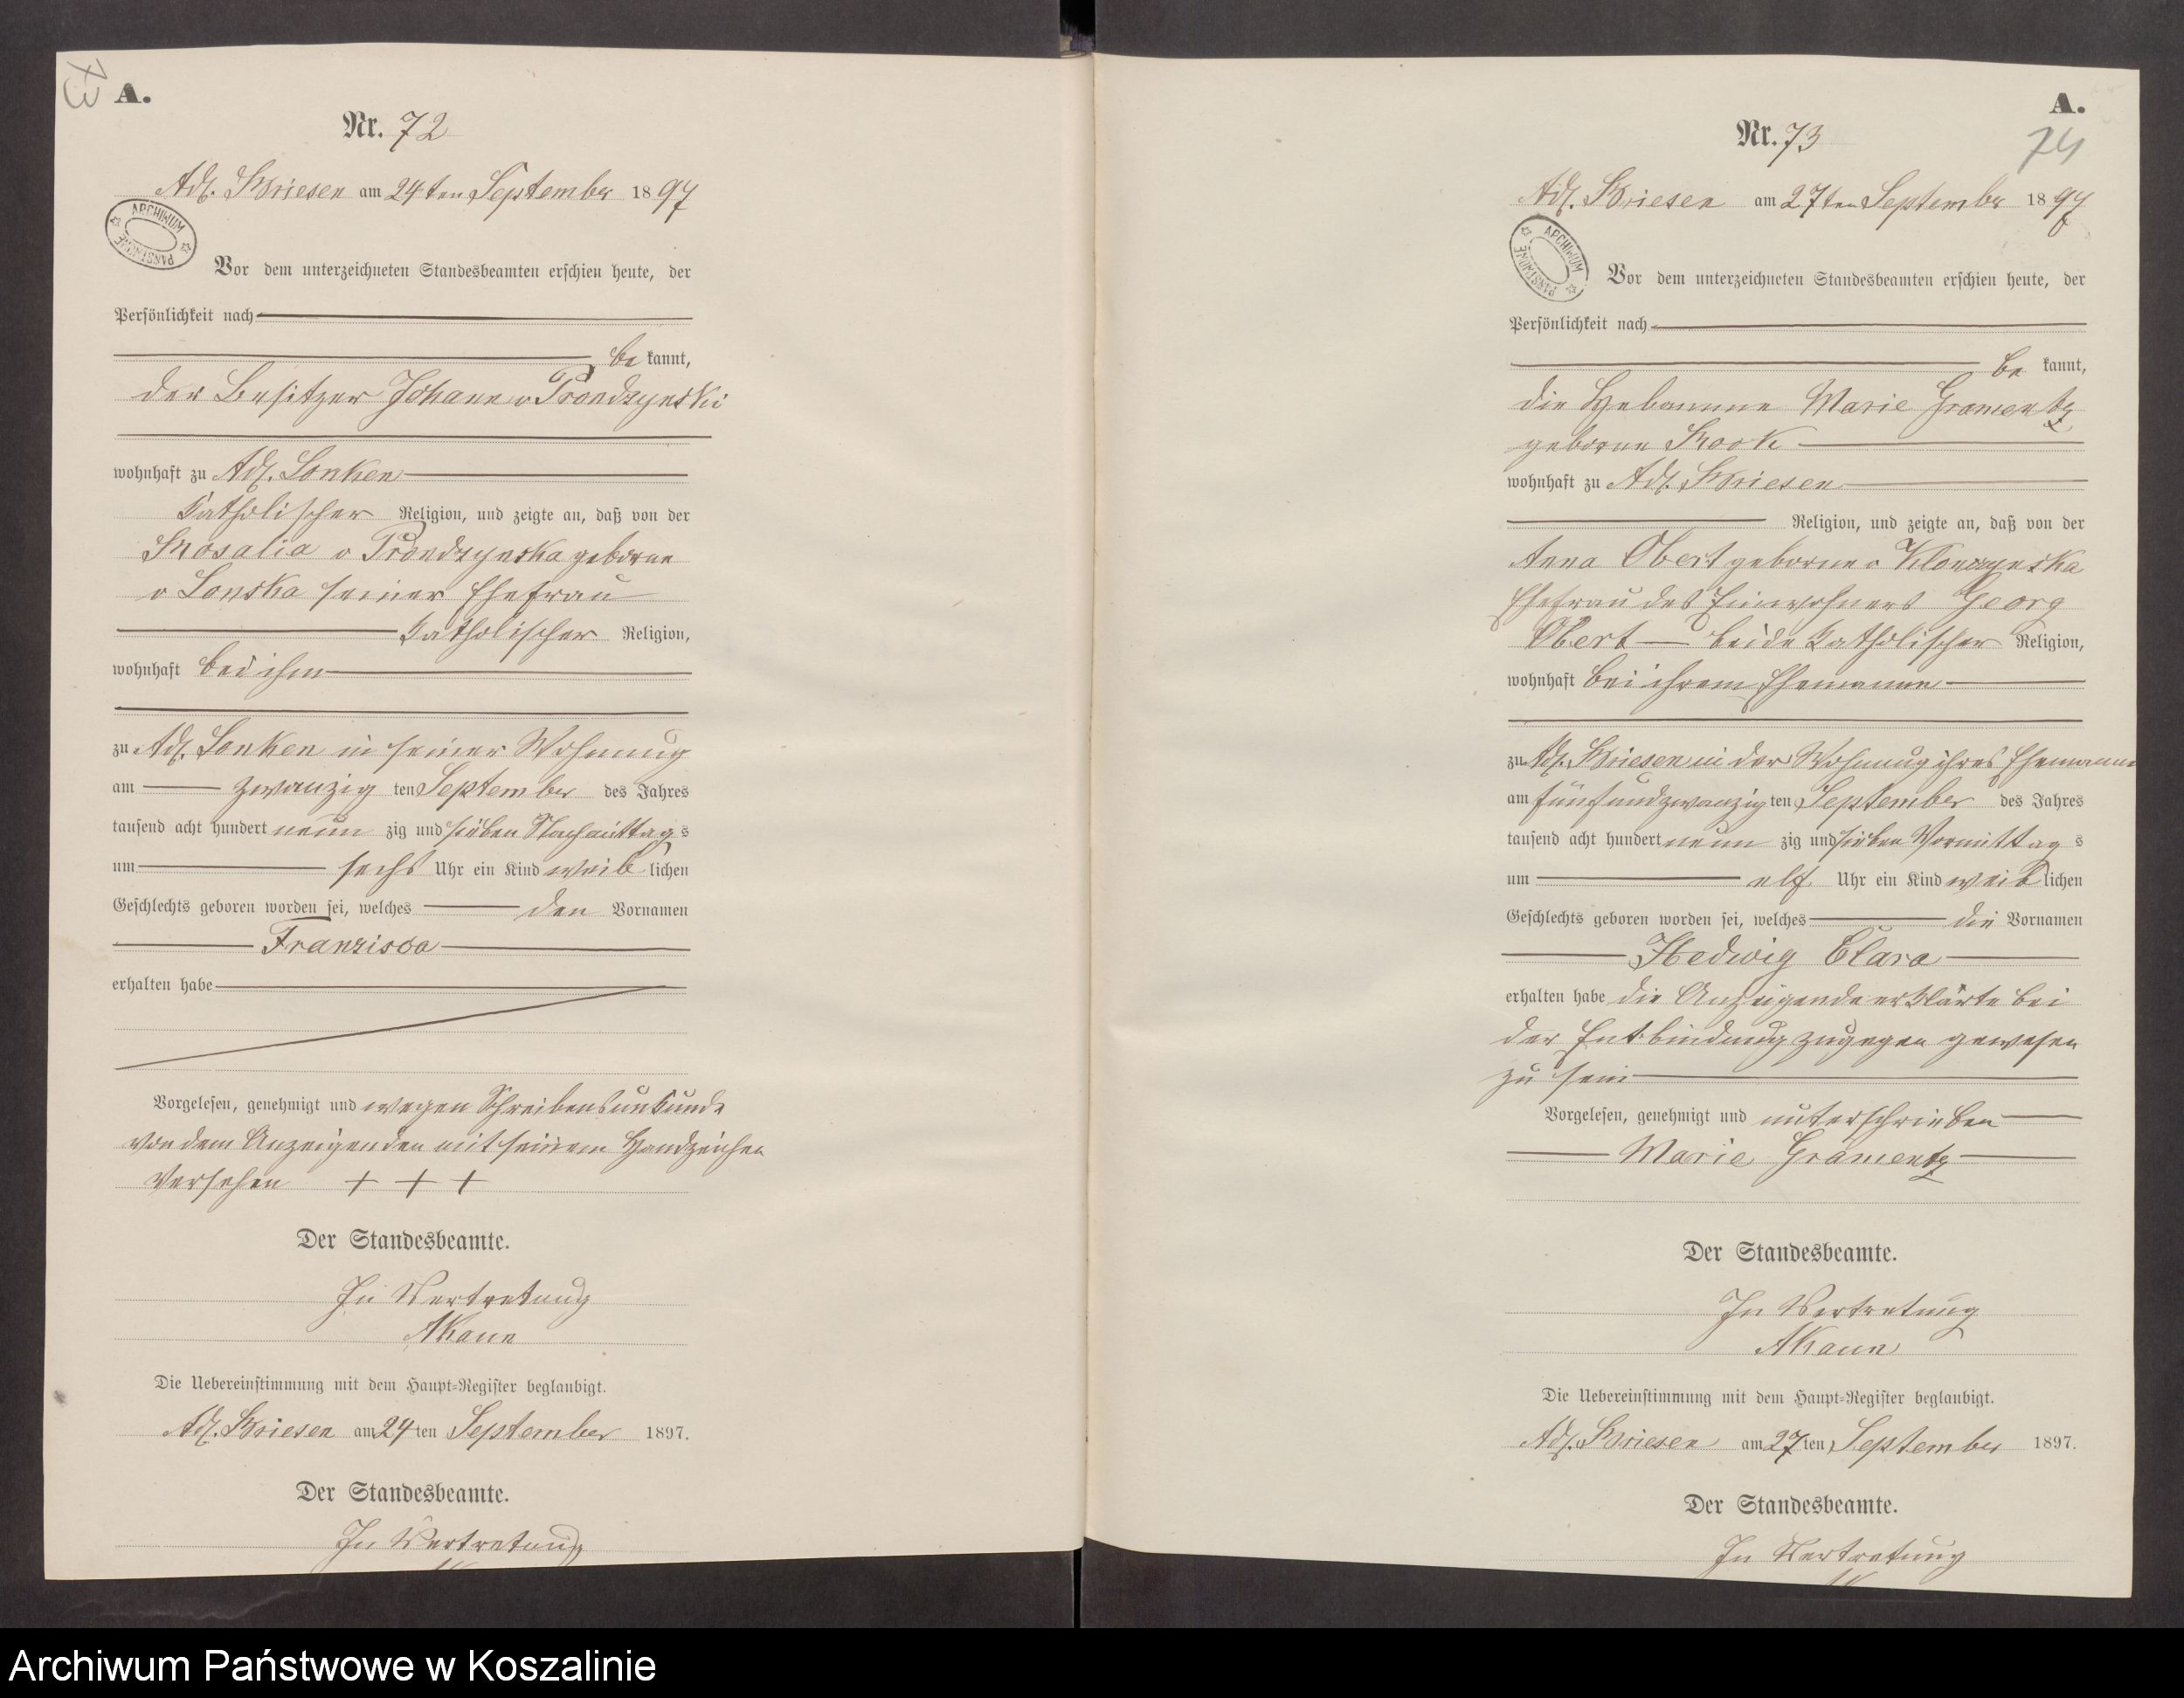 73
A.
Nr. 72
Adl. Briesen am 24ten September 1897
ARCHIWUM PAŃSTWOWE
Vor dem unterzeichneten Standesbeamten erschien heute, der
Persönlichkeit nach
be kannt,
der Besitzer Johann v Prondzynski
wohnhaft zu Adl. Lonken
katholischer Religion, und zeigte an, daß von der
Rosalia v Prondzynska geborne
v Lonska seiner Ehefrau
katholischer Religion,
wohnhaft bei ihm
zu Adl. Lonken in seiner Wohnung
am zwanzig ten September des Jahres
tausend acht hundert neun zig und sieben Nachmittag s
um sechs Uhr ein Kind weib lichen
Geschlechts geboren worden sei, welches den Vornamen
Franzisca
erhalten habe
Vorgelesen, genehmigt und wegen Schreibensunkunde
von dem Anzeigenden mit seinem Handzeichen
versehen + + +
Der Standesbeamte.
In Vertretung
AKann
Die Uebereinstimmung mit dem Haupt-Register beglaubigt.
Adl. Briesen am 24 ten September 1897.
Der Standesbeamte.
In Vertretung
A.
74
Nr. 73
Adl. Briesen am 27ten September 1897
ARCHIWUM PAŃSTWOWE
Vor dem unterzeichneten Standesbeamten erschien heute, der
Persönlichkeit nach
be kannt,
die Hebamme Marie Gramentz
geborne
wohnhaft zu Adl. Briesen
Religion, und zeigte an, daß von der
Anna Obert geborne v Klonczynska
Ehefrau des Einwohners Georg
Obert beide katholischer Religion,
wohnhaft bei ihrem Ehemanne
zu Adl. Briesen in der Wohnung ihres Ehemanns
am fünfundzwanzig ten September des Jahres
tausend acht hundert neun zig und sieben Vormittag s
um elf Uhr ein Kind weib lichen
Geschlechts geboren worden sei, welches die Vornamen
Hedwig Clara
erhalten habe die Anzeigende erklärte bei
der Entbindung zugegen gewesen
zu sein
Vorgelesen, genehmigt und unterschrieben
Marie Gramentz
Der Standesbeamte.
In Vertretung
AKann
Die Uebereinstimmung mit dem Haupt-Register beglaubigt.
Adl. Briesen am 27 ten September 1897.
Der Standesbeamte.
In Vertretung
Archiwum Państwowe w Koszalinie